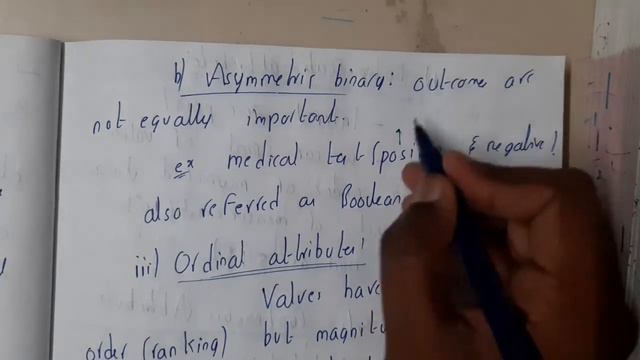 b) Asymmetric binary: outcome are
not equally important.
ex medical test (posi & negative)
also referred as Boolean
iii) Ordinal attributes:
Values have
order (ranking) but magnitu